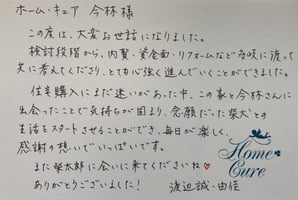 ホーム・キュア 今林様
この度は、大変お世話になりました。
検討段階から、内覧・資金面・リフォームなど多岐に渡って
共に考えてくださり、とても心強く進んでいくことができました。
住宅購入にまだ迷いがあった中、この家と今林さんに
出会ったことで気持ちが固まり、念願だった柴犬との
生活をスタートさせることができ、毎日が楽しく、
感謝の想いでいっぱいです。
また柴太郎に会いに来てくださいね♡
ありがとうございました!
渡辺誠・由佳
Home
Cure